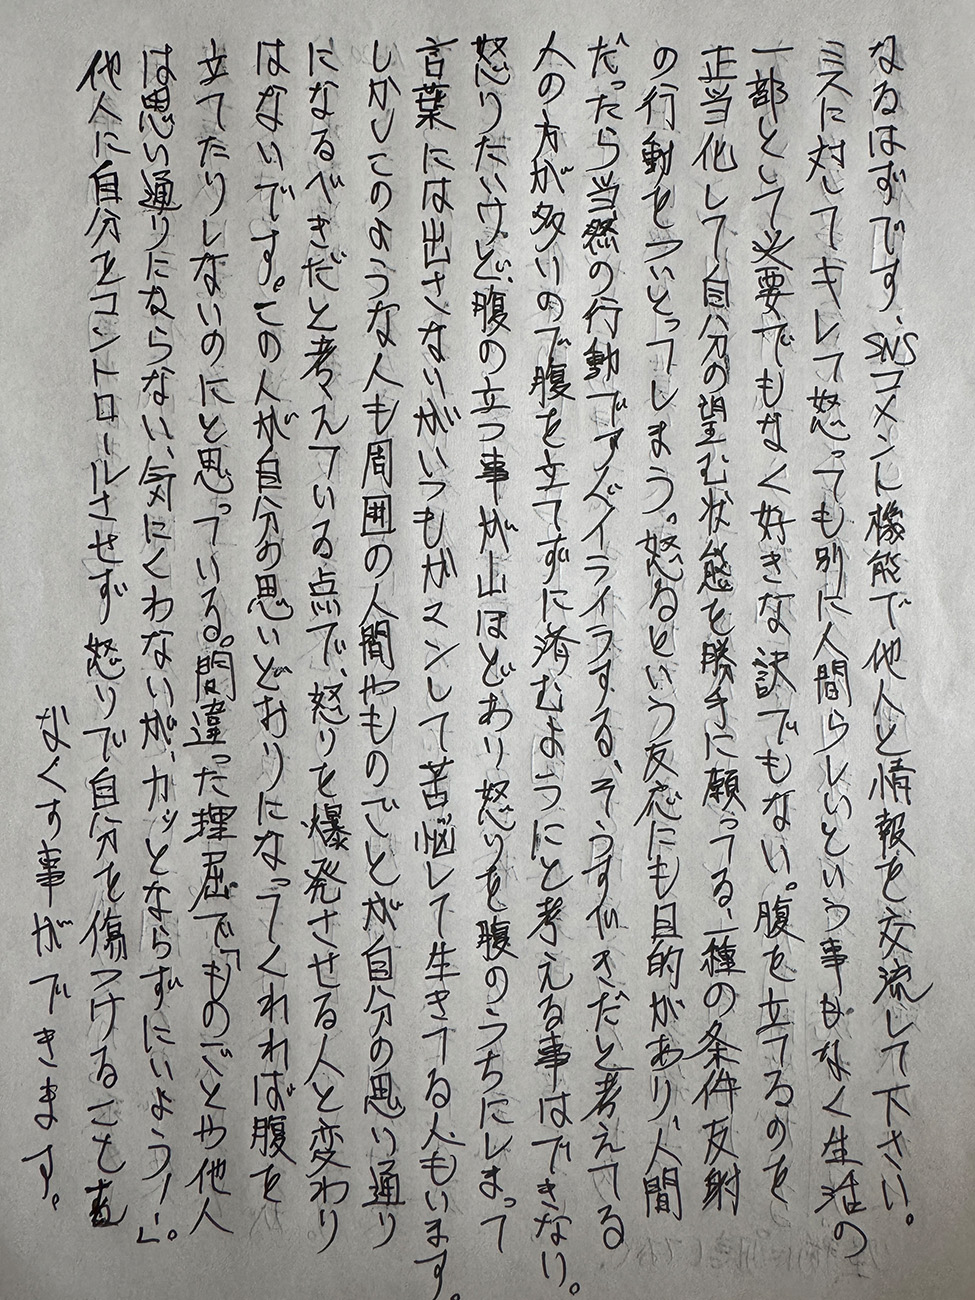 なるはずです、SNSコメント機能で他人と情報を交流して下さい。
ミスに対してキレて怒っても別に人間らしいという事もなく生活の
一部として必要でもなく好きな訳でもない。腹を立てるのを
正当化して自分の望む状態を勝手に願ってる、一種の条件反射
の行動をついとってしまう。怒るという反応にも目的があり、人間
だったら当然の行動ですぐイライラする、そうすべきだと考えてる
人の方が多いので腹を立てずに済むようにと考える事はできない。
怒りたいけど、腹の立つ事が山ほどあり怒りを腹のうちにしまって
言葉には出さないがいつもガマンして苦悩して生きてる人もいます。
しかしこのような人も周囲の人間やものごとが自分の思い通り
になるべきだと考えている点で、怒りを爆発させる人と変わり
はないです。この人が自分の思いどおりになってくれれば腹を
立てたりしないのにと思っている。間違った理屈で「ものごとや他人
は思い通りにならない、気にくわないが、カッとならずにいよう！」。
他人に自分をコントロールさせず怒りで自分を傷つけることを
なくす事ができます。